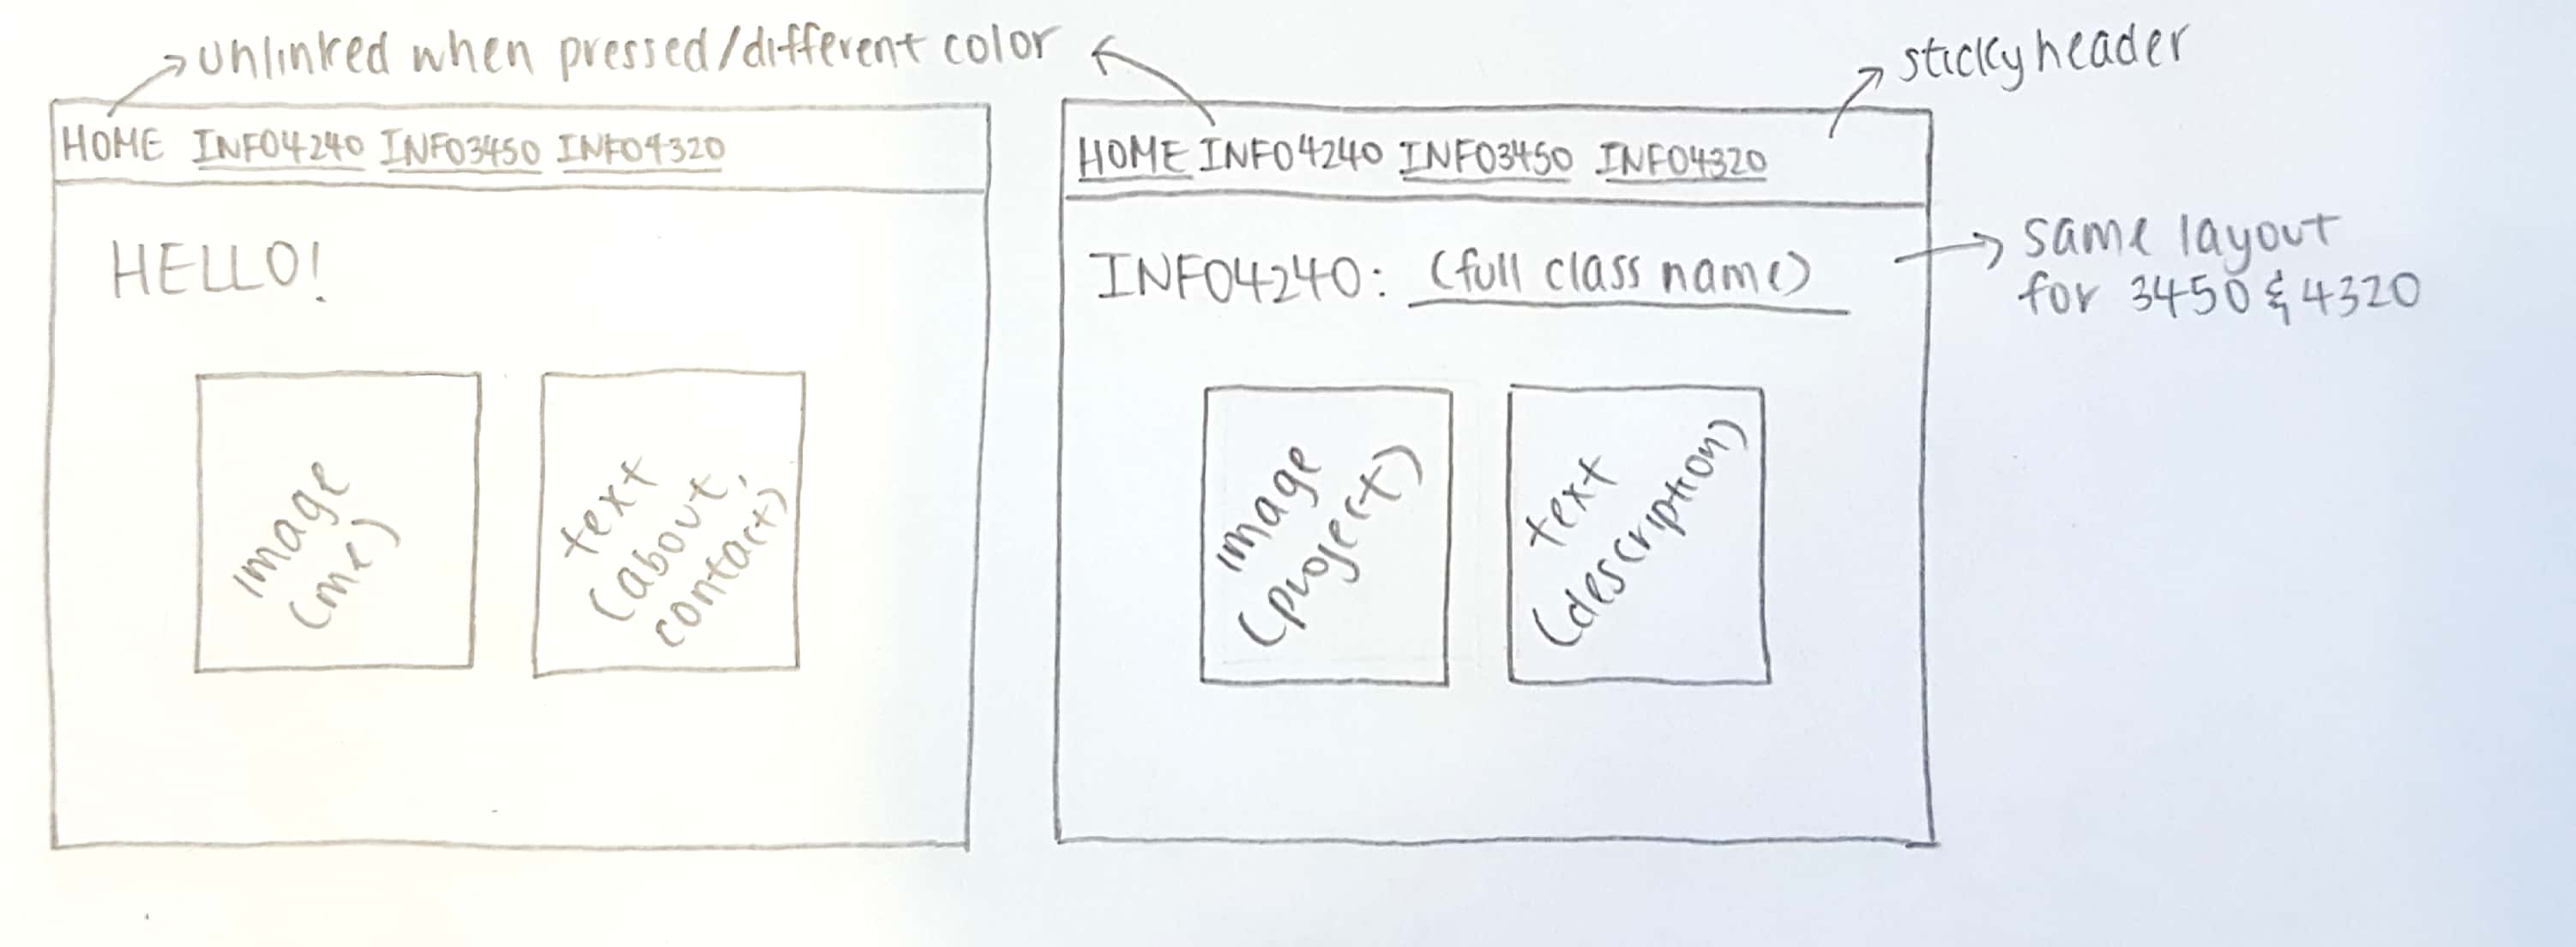 unlinked when pressed/different color
sticky header
HOME INFO4240 INFO3450 INFO4320
HELLO!
image
(me)
text
(about,
contact)
HOME INFO4240 INFO3450 INFO4320
INFO4240: (full class name)
same layout
for 3450 & 4320
image
(project)
text
(description)